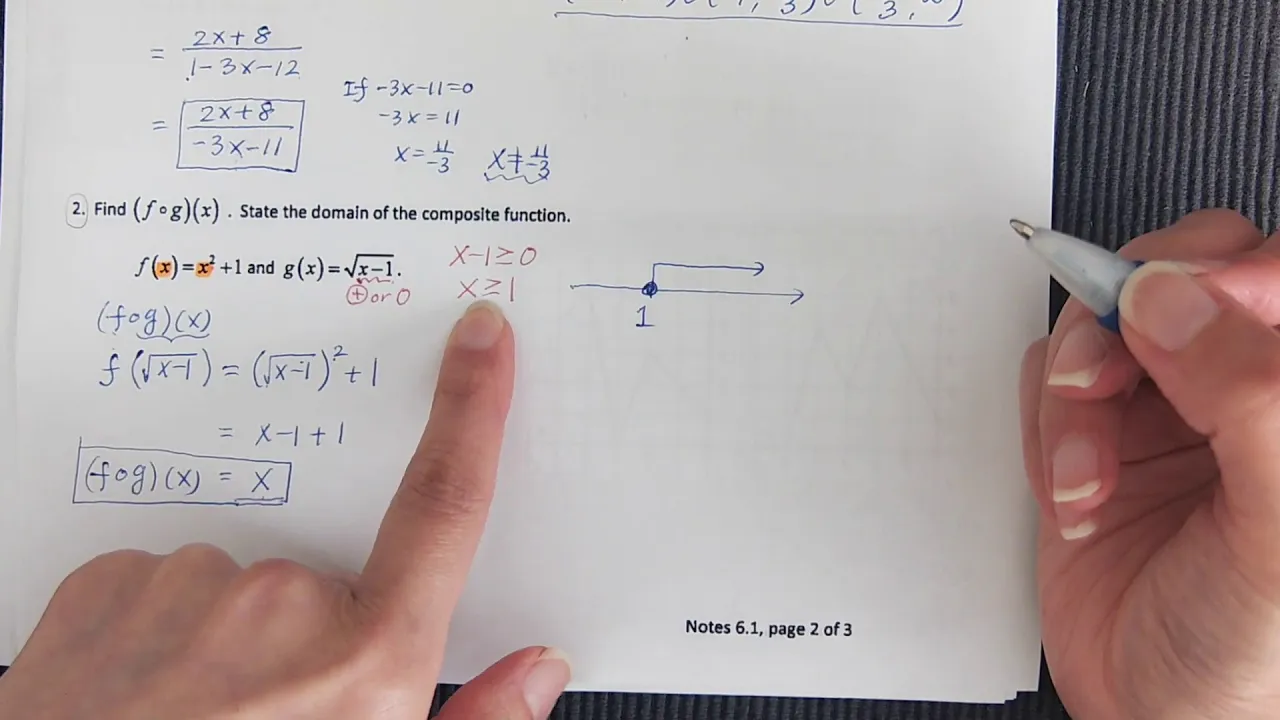 , 3) ∪ ( 3, ∞)
= 2x+8 / 1-3x-12
= 2x+8 / -3x-11
If -3x-11=0
-3x=11
x= 11/-3 x≠ 11/-3
2. Find (f∘g)(x). State the domain of the composite function.
f(x)=x²+1 and g(x)=√x-1.
⊕ or 0
x-1≥0
x≥1
1
(f∘g)(x)
f(√x-1) = (√x-1)²+1
= x-1+1
(f∘g)(x) = x
Notes 6.1, page 2 of 3